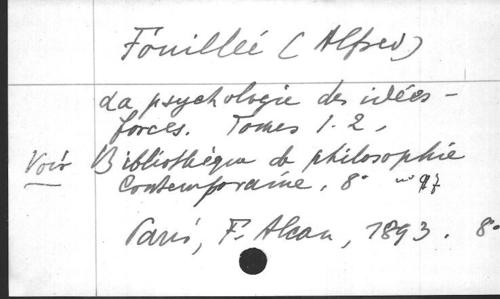 Fouillée (Alfred)
La psychologie des idées-
forces. Tomes 1-2,
Voir Bibliothèque de philosophie
contemporaine. 8° n° 97
Paris, F. Alcan, 1893. 8°